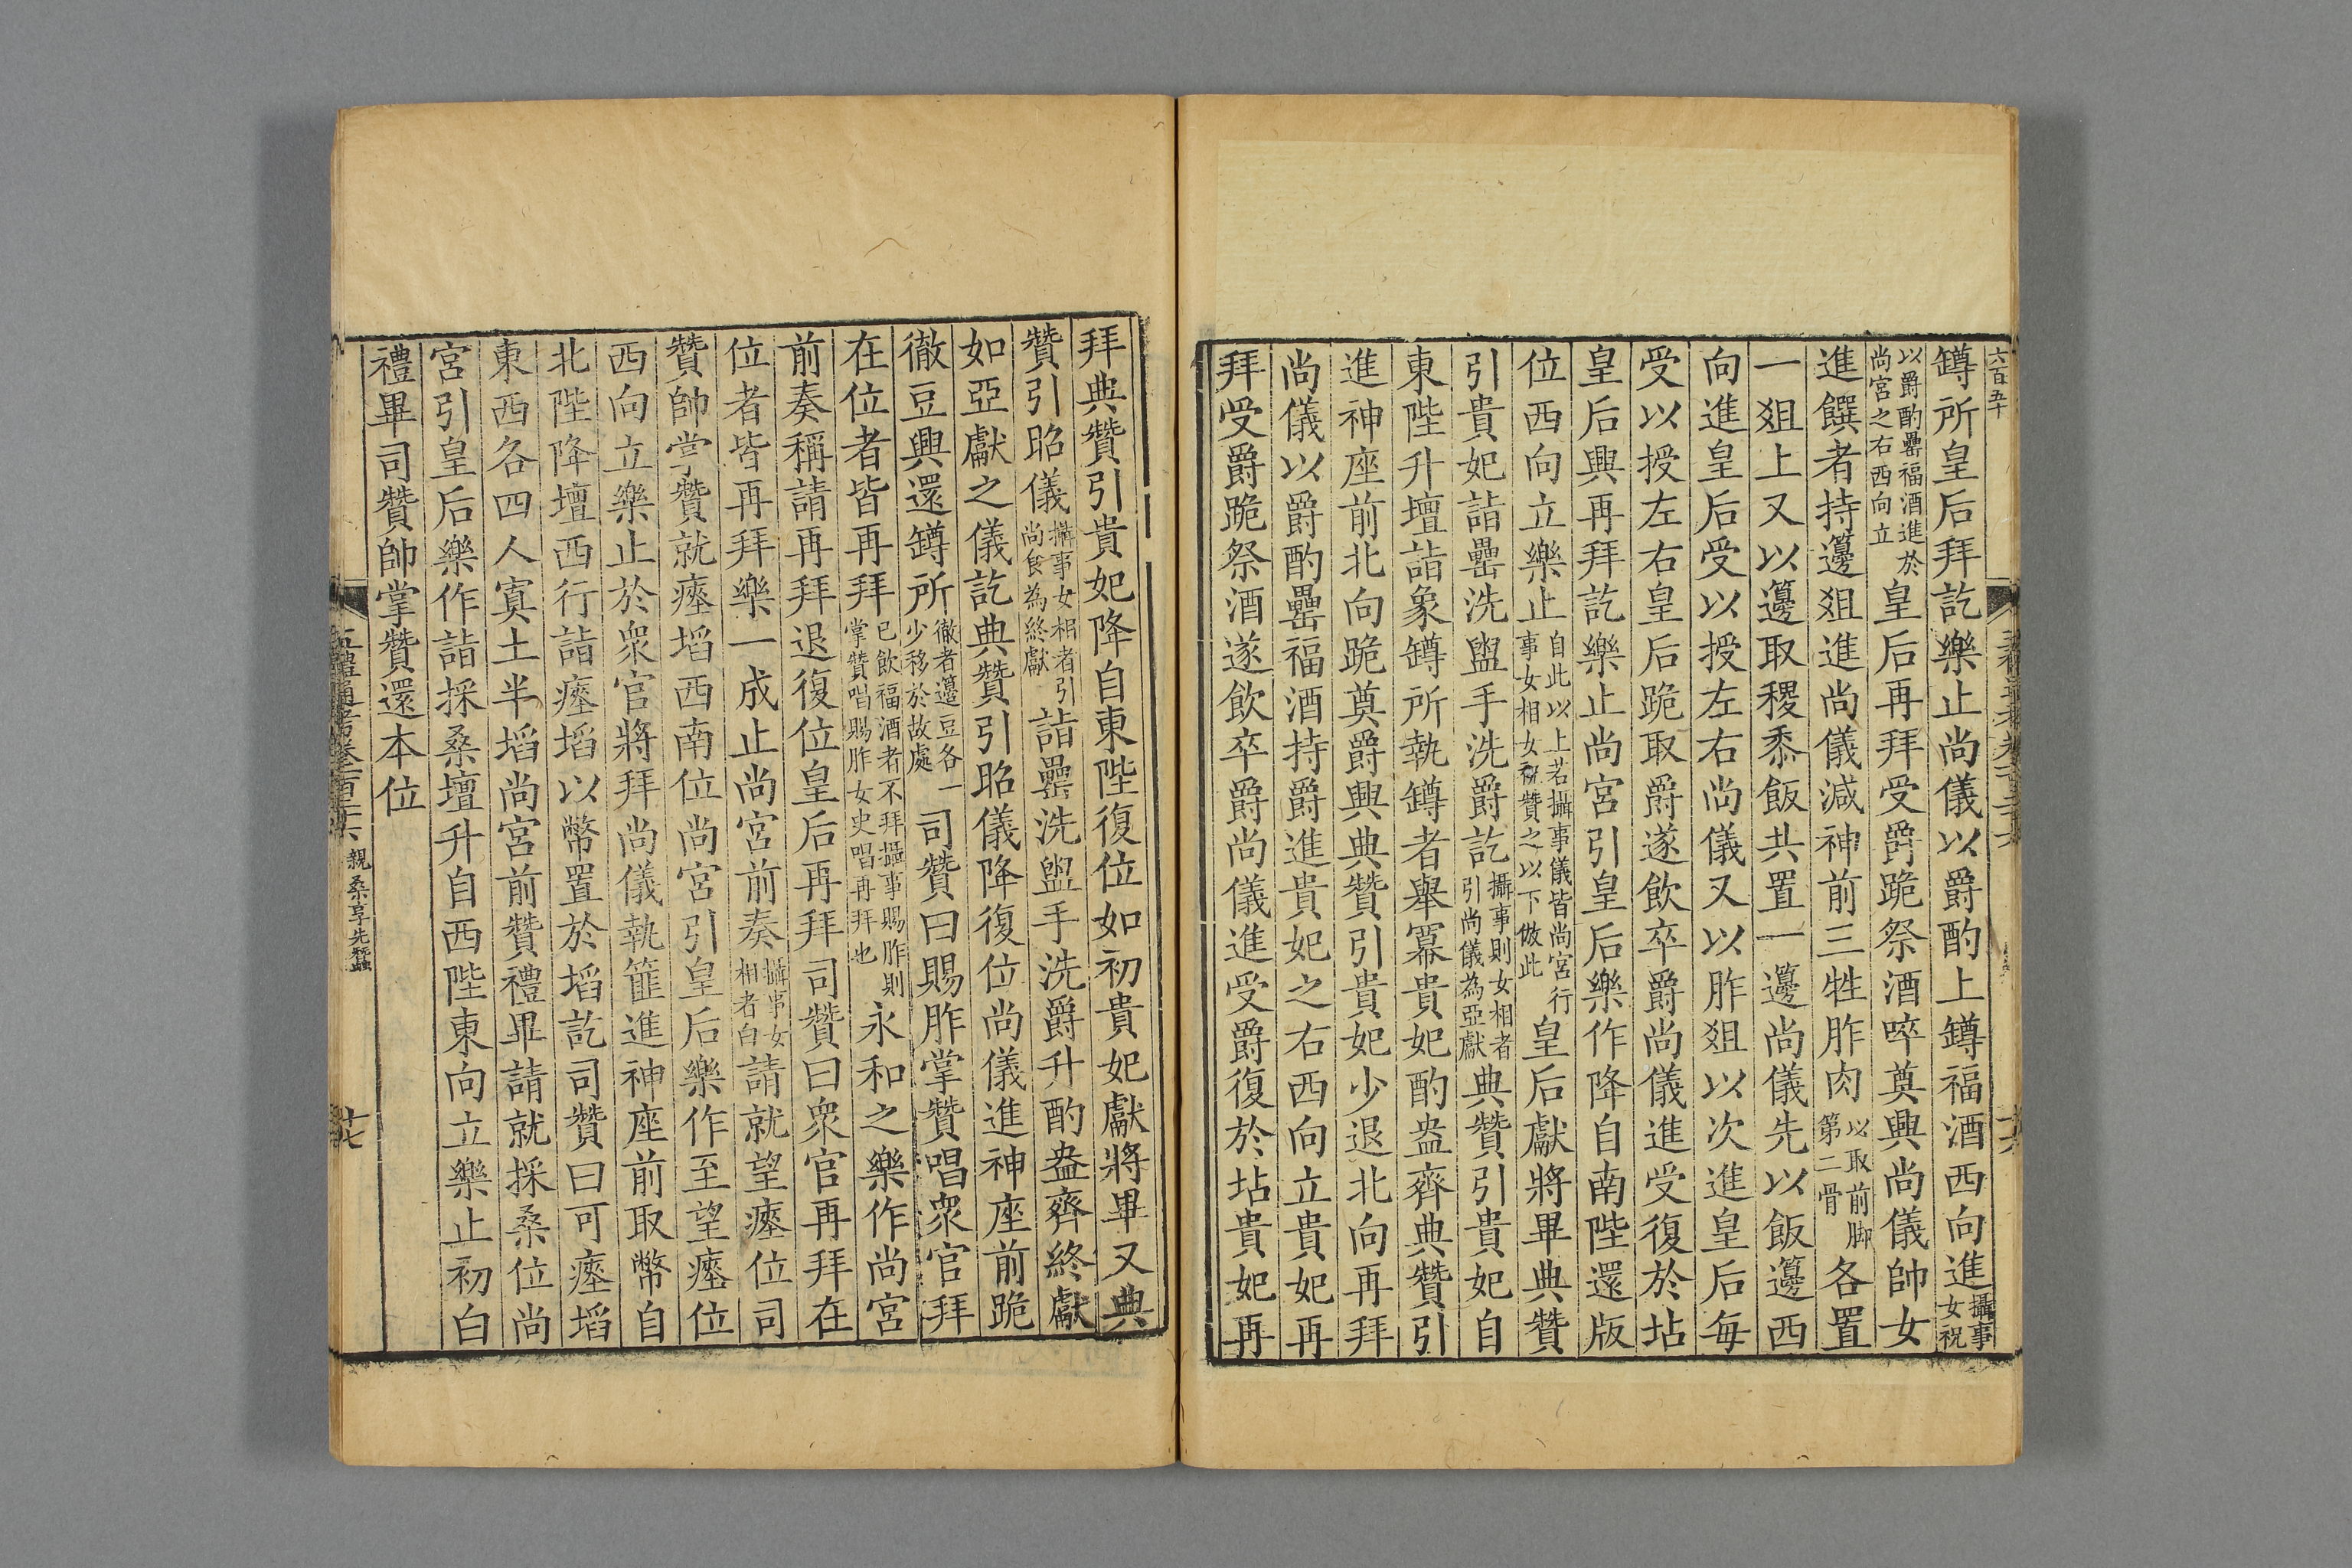 六百五十
罇所皇后拜訖樂止尚儀以爵酌上罇福酒西向進攝事女祝
以爵酌罍福酒進於尚宮之右西向立皇后再拜受爵跪祭酒啐奠興尚儀帥女
進饌者持籩俎進尚儀減神前三牲胙肉以取前脚第二骨各置
一俎上又以籩取稷黍飯共置一籩尚儀先以飯籩西
向進皇后受以授左右尚儀又以胙俎以次進皇后每
受以授左右皇后跪取爵遂飲卒爵尚儀進受復於坫
皇后興再拜訖樂止尚宮引皇后樂作降自南陛還版
位西向立樂止自此以上若攝事儀皆尚宮行事女相女祝贊之以下倣此皇后獻將畢典贊
引貴妃詣罍洗盥手洗爵訖攝事則女相者引尚儀為亞獻典贊引貴妃自
東陛升壇詣象罇所執罇者舉冪貴妃酌盎齊典贊引
進神座前北向跪奠爵興典贊引貴妃少退北向再拜
尚儀以爵酌罍福酒持爵進貴妃之右西向立貴妃再
拜受爵跪祭酒遂飲卒爵尚儀進受爵復於坫貴妃再
拜典贊引貴妃降自東陛復位如初貴妃獻將畢又典
贊引昭儀攝事女相者引尚食為終獻詣罍洗盥手洗爵升酌盎齊終獻
如亞獻之儀訖典贊引昭儀降復位尚儀進神座前跪
徹豆興還罇所徹者籩豆各一少移於故處司贊曰賜胙掌贊唱眾官拜
在位者皆再拜已飲福酒者不拜攝事賜胙則掌贊唱賜胙女史唱再拜也永和之樂作尚宮
前奏稱請再拜退復位皇后再拜司贊曰眾官再拜在
位者皆再拜樂一成止尚宮前奏攝事女相者白請就望瘞位司
贊帥掌贊就瘞埳西南位尚宮引皇后樂作至望瘞位
西向立樂止於眾官將拜尚儀執篚進神座前取幣自
北陛降壇西行詣瘞埳以幣置於埳訖司贊曰可瘞埳
東西各四人寘土半埳尚宮前贊禮畢請就採桑位尚
宮引皇后樂作詣採桑壇升自西陛東向立樂止初白
禮畢司贊帥掌贊還本位
五禮通考卷一百二十六 親桑享先蠶 十七